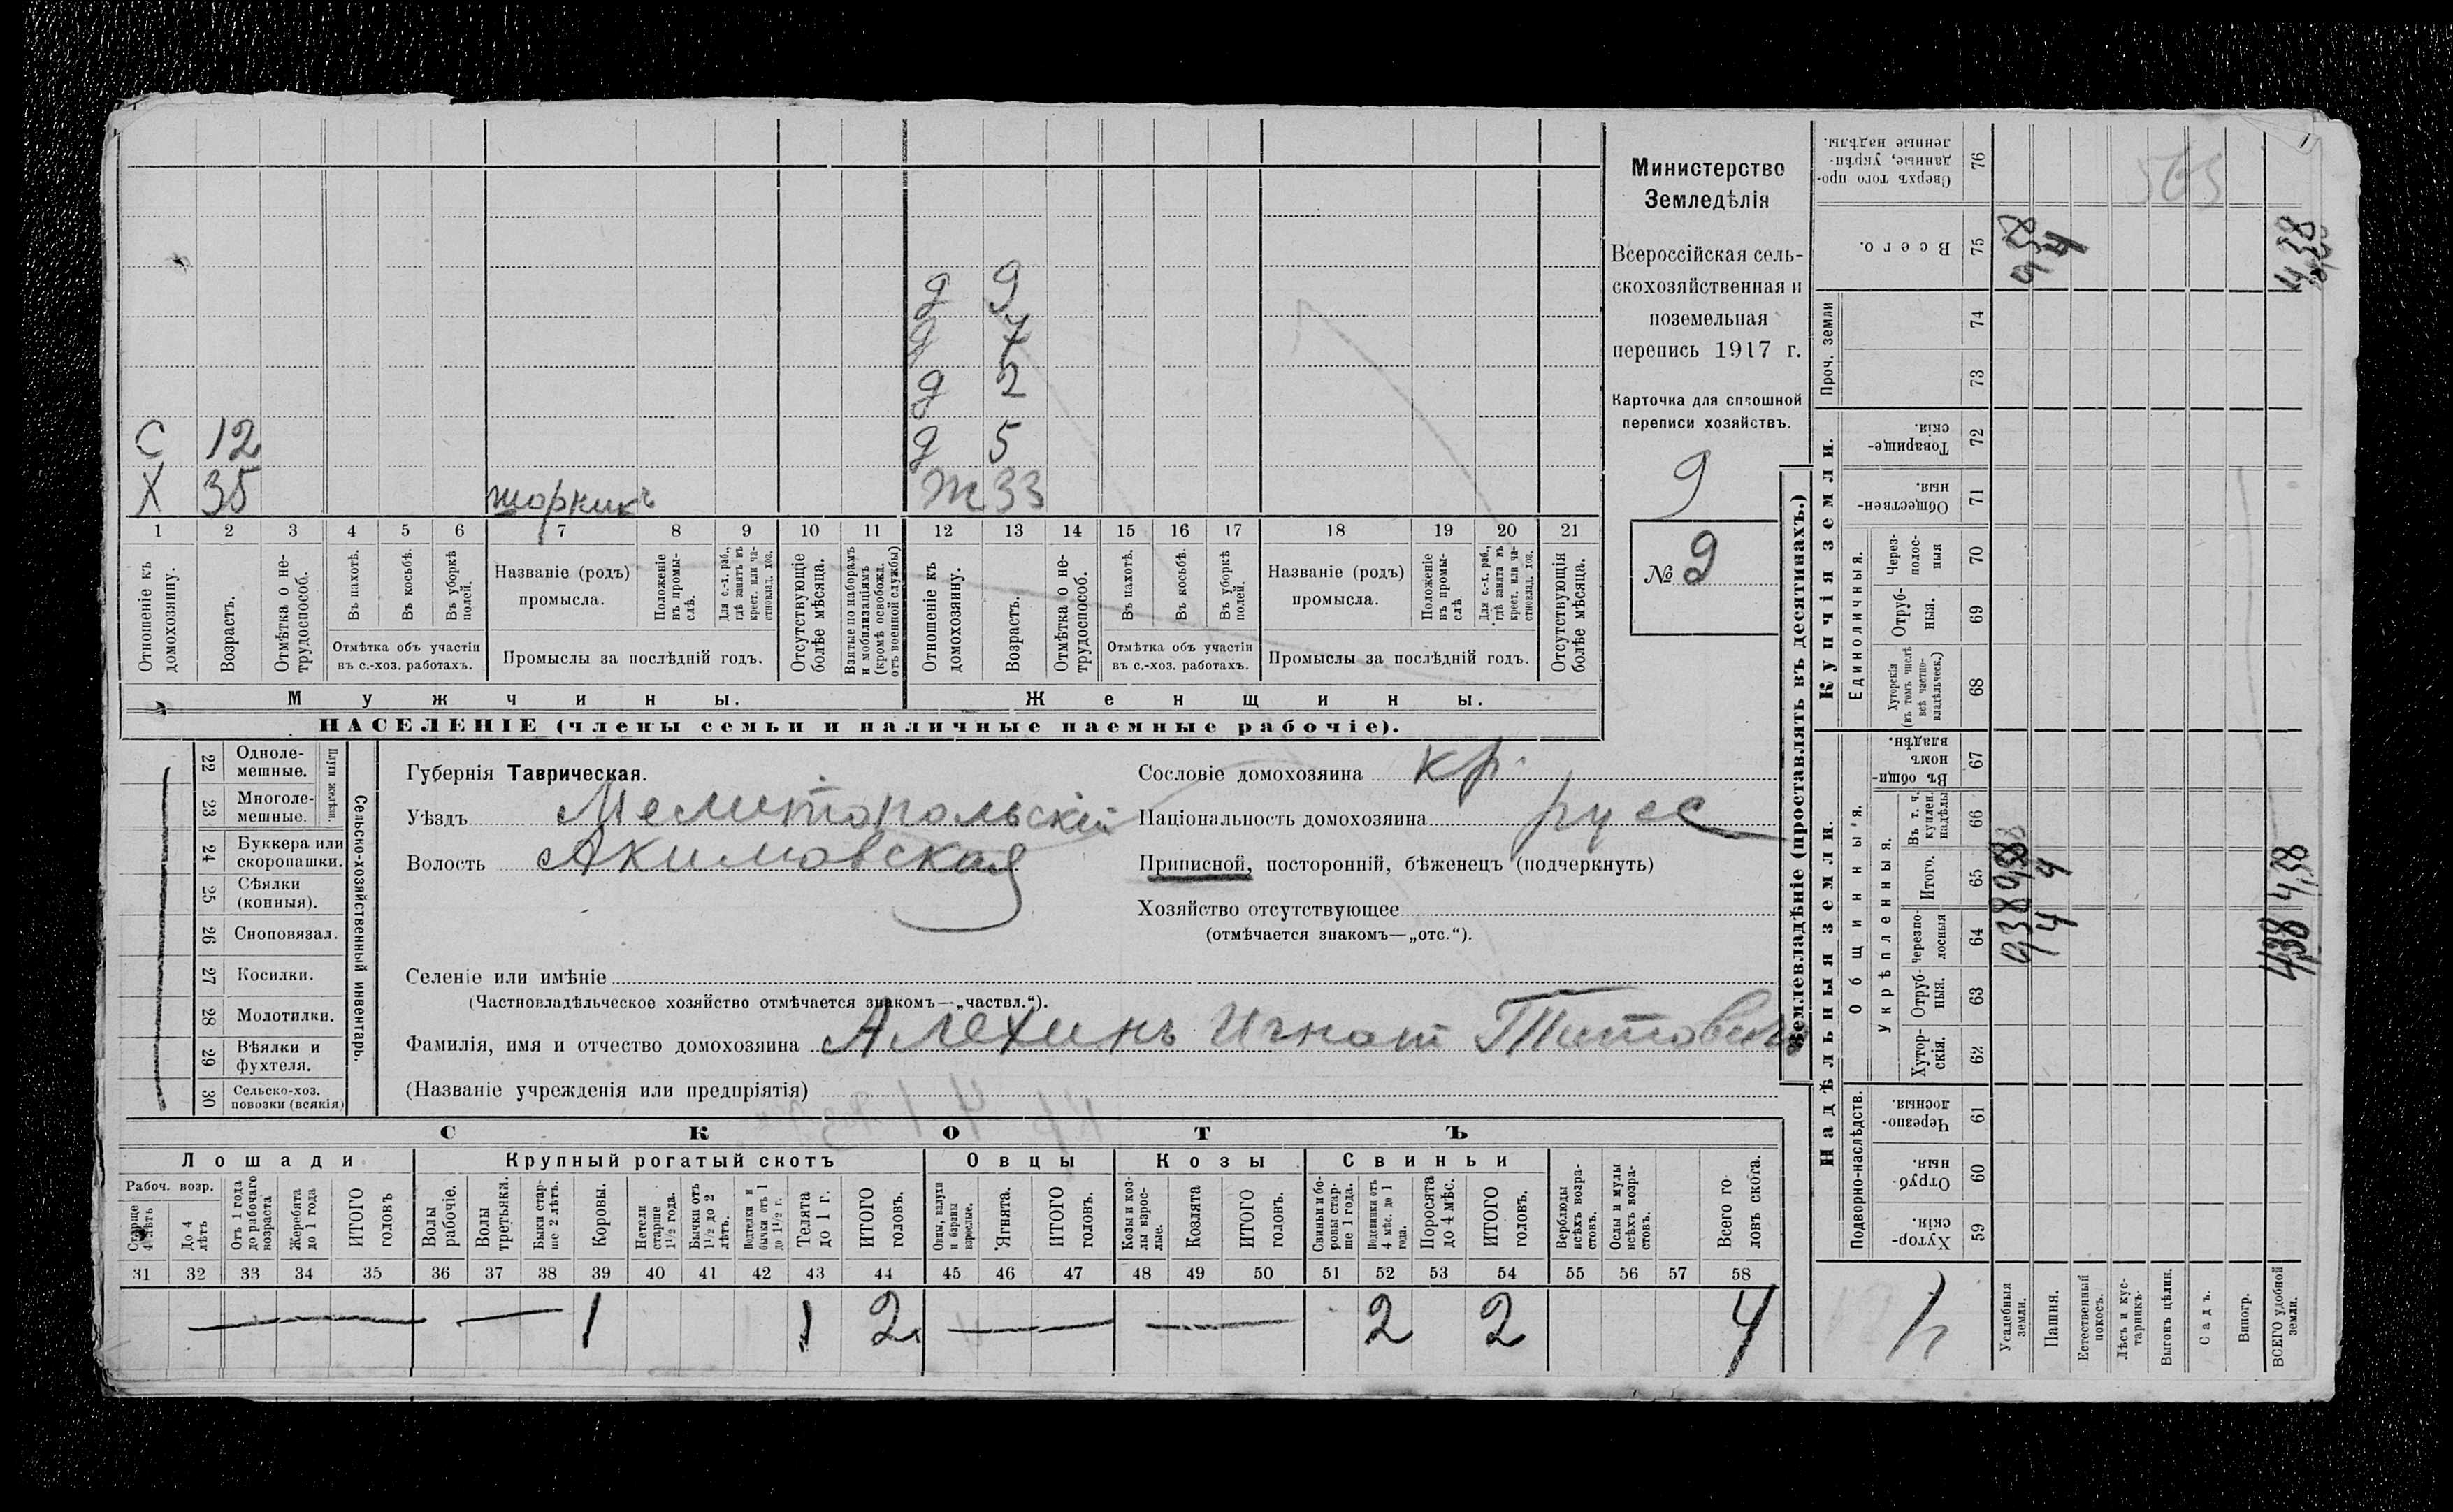 Министерство
Земледѣлія
Всероссійская сель-
скохозяйственная и
поземельная
перепись 1917 г.
Карточка для сплошной
переписи хозяйствъ.
9
№ 9
д 9
д 7
д 2
С 12 д 5
Х 35 Ж 33
1 2 3 4 5 6 7 8 9 10 11 12 13 14 15 16 17 18 19 20 21
Отношеніе къ домохозяину.
Возрастъ.
Отмѣтка о не-трудоспособ.
Въ пахотѣ.
Въ косьбѣ.
Въ уборкѣ полей.
Отмѣтка объ участіи
въ с.-хоз. работахъ.
Названіе (родъ)
промысла.
Положеніе въ промы-слѣ.
Для с.-х. раб., гдѣ занятъ въ крест. или ча-стновлад. хоз.
Промыслы за послѣдній годъ.
Отсутствующіе болѣе мѣсяца.
Взятые по наборамъ и мобилизаціямъ (кромѣ освобожд. отъ военной службы)
Отношеніе къ домохозяину.
Возрастъ.
Отмѣтка о не-трудоспособ.
Въ пахотѣ.
Въ косьбѣ.
Въ уборкѣ полей.
Отмѣтка объ участіи
въ с.-хоз. работахъ.
Названіе (родъ)
промысла.
Положеніе въ промы-слѣ.
Для с.-х. раб., гдѣ занята въ крест. или ча-стновлад. хоз.
Промыслы за послѣдній годъ.
Отсутствующія болѣе мѣсяца.
Мужчины. Женщины.
НАСЕЛЕНІЕ (члены семьи и наличные наемные рабочіе).
22 Одноле-мешные.
23 Многоле-мешные.
Плуги желѣзн.
24 Буккера или скоропашки.
25 Сѣялки (конныя).
26 Сноповязал.
27 Косилки.
28 Молотилки.
29 Вѣялки и фухтеля.
30 Сельско-хоз. повозки (всякія)
Сельско-хозяйственный инвентарь.
Губернія Таврическая.
Уѣздъ Мелитопольскій
Волость Акимовская
Сословіе домохозяина кр.
Національность домохозяина русс
Приписной, посторонній, бѣженецъ (подчеркнуть)
Хозяйство отсутствующее
(отмѣчается знакомъ—„отс.“).
Селеніе или имѣніе
(Частновладѣльческое хозяйство отмѣчается знакомъ—„частвл.“).
Фамилія, имя и отчество домохозяина Алехинъ Игнат Титовичъ
(Названіе учрежденія или предпріятія)
СКОТЪ
Лошади Крупный рогатый скотъ Овцы Козы Свиньи
Рабоч. возр.
Старше 4 лѣтъ
До 4 лѣтъ
Отъ 1 года до рабочаго возраста
Жеребята до 1 года
ИТОГО головъ
Волы рабочіе.
Волы третьяки.
Быки стар-ше 2 лѣтъ.
Коровы.
Нетели старше 1½ года.
Бычки отъ 1½ до 2 лѣтъ.
Подтелки и бычки отъ 1 до 1½ г.
Телята до 1 г.
ИТОГО головъ.
Овцы, валухи и бараны взрослые.
Ягнята.
ИТОГО головъ.
Козы и коз-лы взрос-лые.
Козлята
ИТОГО головъ.
Свиньи и бо-ровы стар-ше 1 года.
Подсвинки отъ 4 мѣс. до 1 года.
Поросята до 4 мѣс.
ИТОГО головъ.
Верблюды всѣхъ возра-стовъ.
Ослы и мулы всѣхъ возра-стовъ.
Всего го-ловъ скота.
31 32 33 34 35 36 37 38 39 40 41 42 43 44 45 46 47 48 49 50 51 52 53 54 55 56 57 58
1 1 2 2 2 4
Землевладѣніе (проставлять въ десятинахъ.)
Купчія земли.
Надѣльныя земли.
Сверхъ того про-данные, укрѣп-ленные надѣлы. 76
Всего. 75
Проч. земли 74 73
Товарище-скія. 72
Обществен-ныя. 71
Единоличныя.
Через-полос-ныя 70
Отруб-ныя. 69
Хуторскія (въ томъ числѣ всѣ частно-владѣльческ.) 68
Общинныя.
Въ общин-номъ владѣн. 67
Укрѣпленныя.
Въ т. ч. куплен. надѣлы 66
Итого. 65
Черезпо-лосныя 64
Отруб-ныя. 63
Хутор-скія. 62
Подворно-наслѣдств.
Черезпо-лосныя. 61
Отруб-ныя. 60
Хутор-скія. 59
Усадебныя земли.
Пашня.
Естественный покосъ.
Лѣсъ и кус-тарникъ.
Выгонъ цѣлин.
Садъ.
Виногр.
ВСЕГО удобной земли.
4,38
4
4
4
4,38
4,38